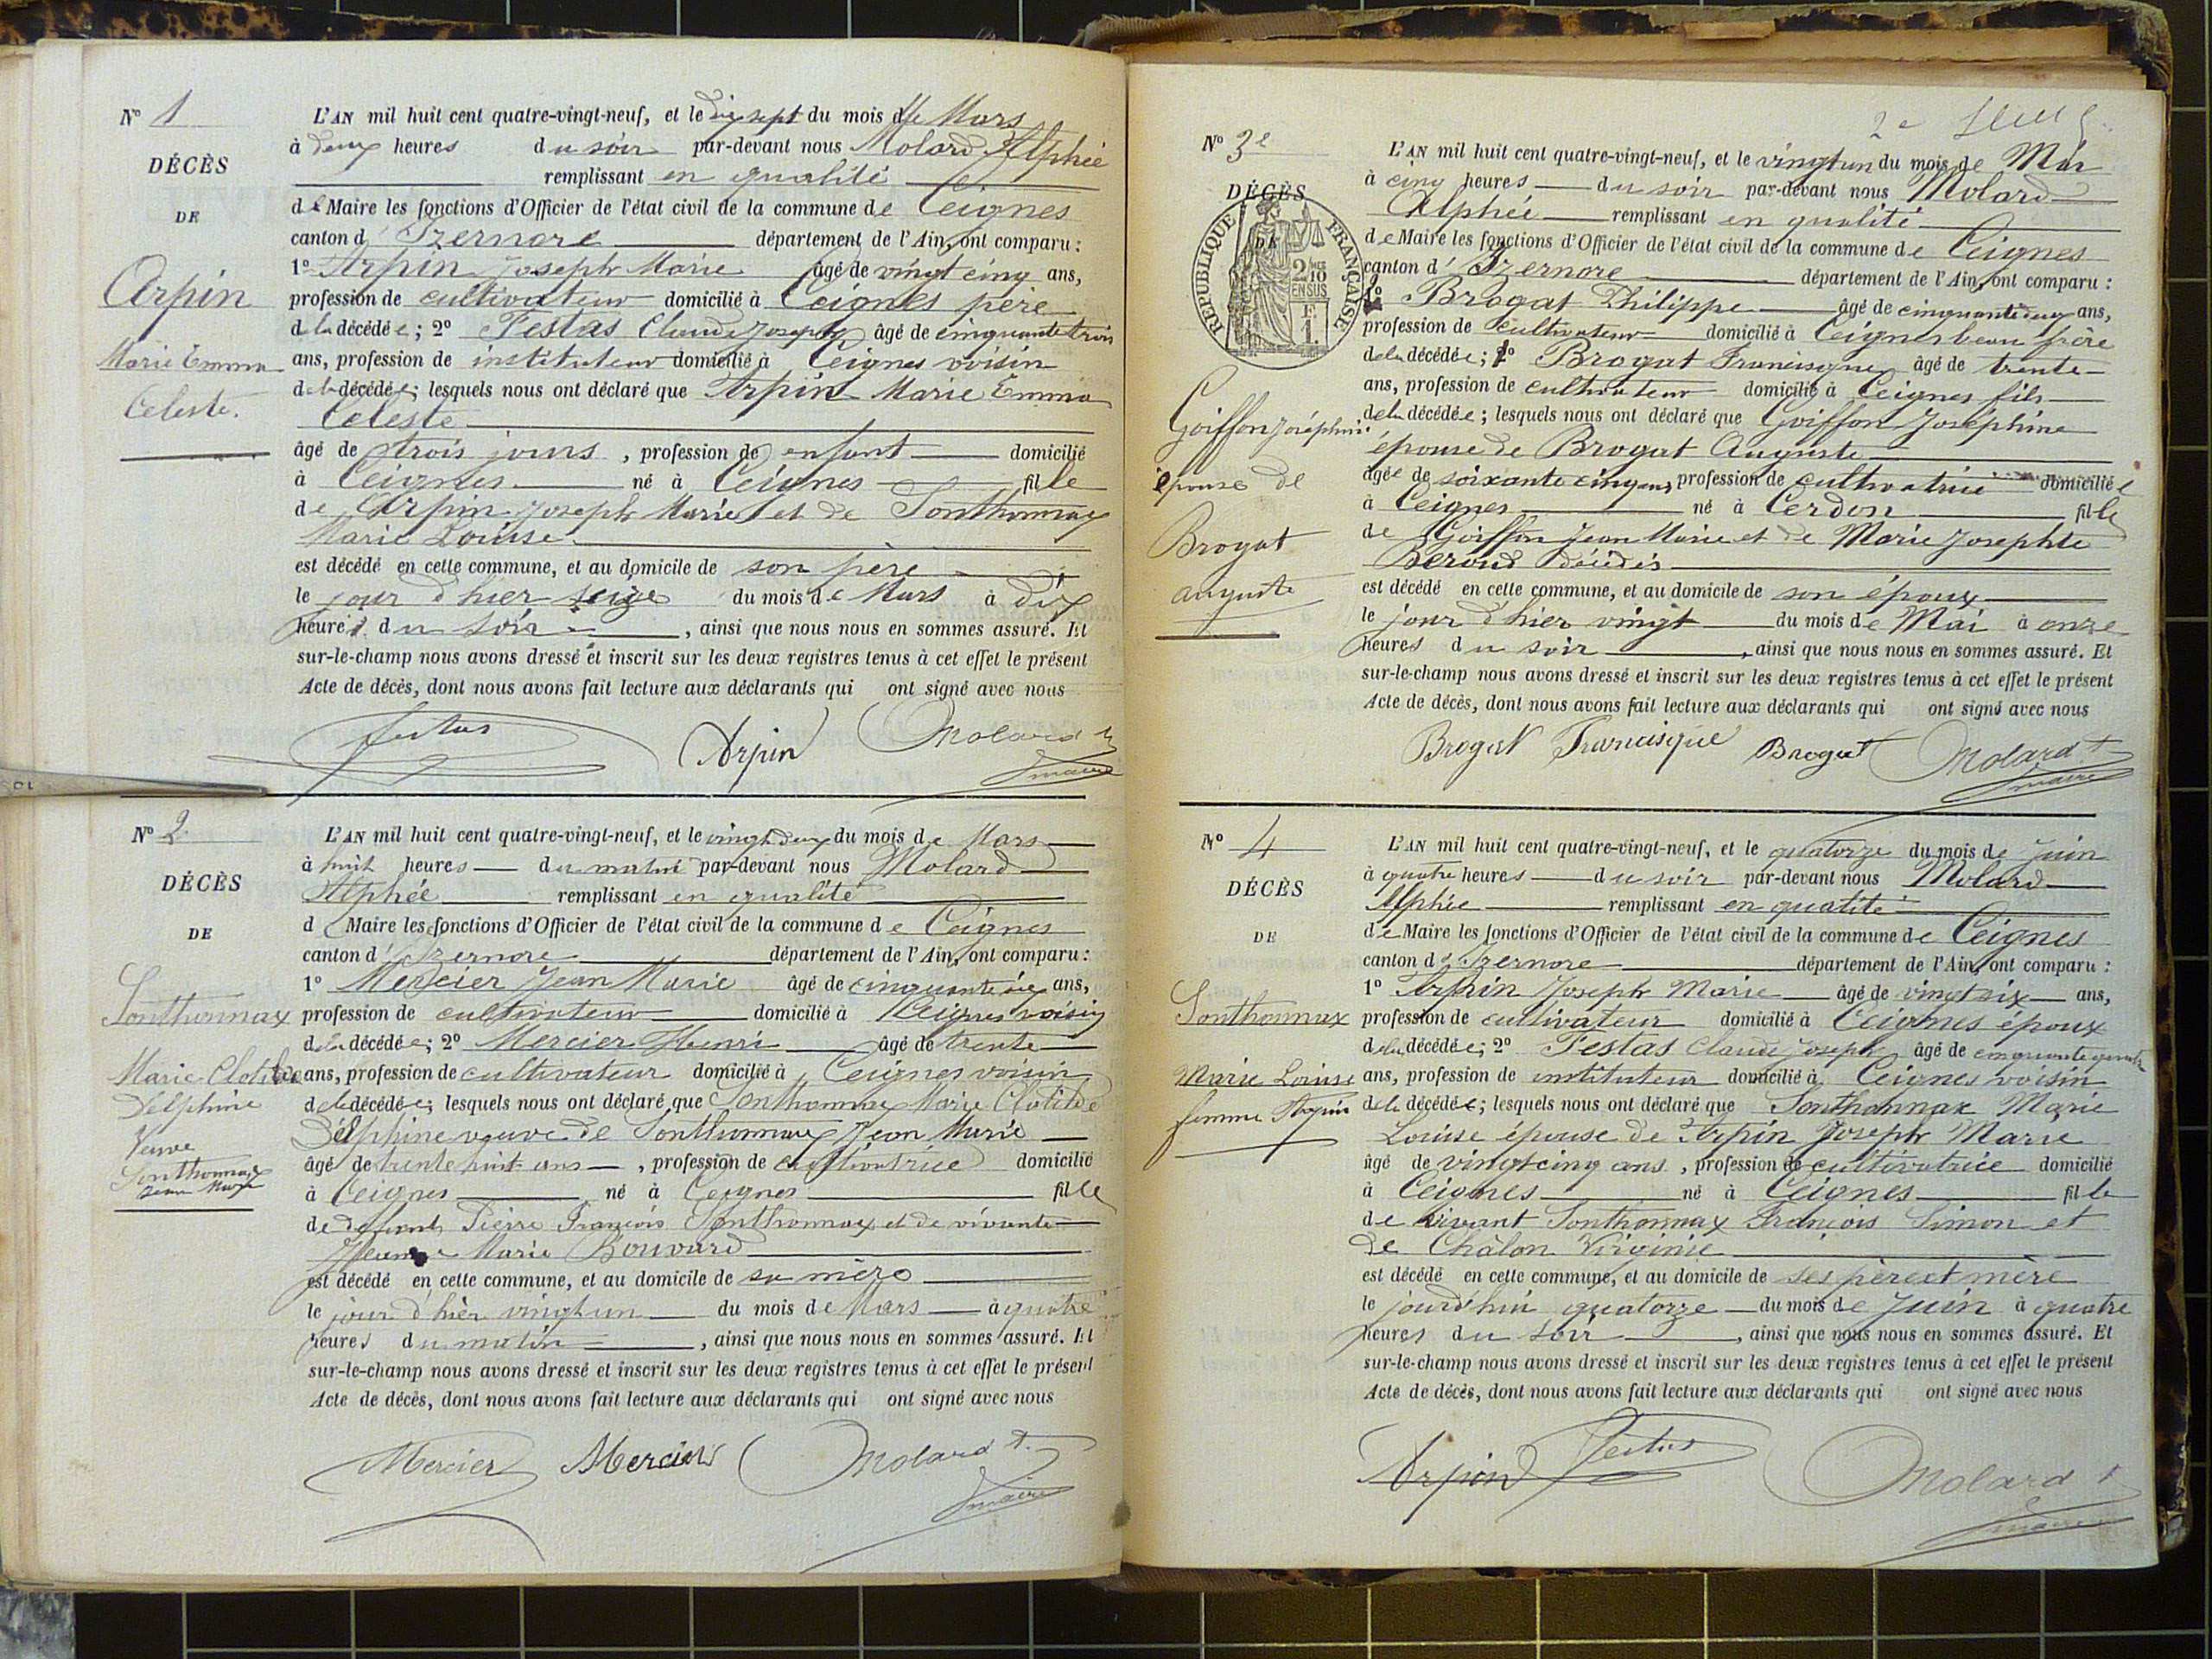 N° 1
DÉCÈS
DE
Arpin
Marie Emma
Celeste.
L'AN mil huit cent quatre-vingt-neuf, et le dix sept du mois de Mars
à deux heures du soir par-devant nous Molard Alphée
remplissant en qualité
de Maire les fonctions d'Officier de l'état civil de la commune de Ceignes
canton d'Izernore département de l'Ain, ont comparu :
1° Arpin Joseph Marie âgé de vingt cinq ans,
profession de cultivateur domicilié à Ceignes père
de la décédée ; 2° Festas Claude Joseph âgé de cinquante trois
ans, profession de instituteur domicilié à Ceignes voisin
de la décédée ; lesquels nous ont déclaré que Arpin Marie Emma
Celeste
âgé de trois jours , profession de enfant domicilié
à Ceignes né à Ceignes fille
de Arpin Joseph Marie et de Sonthonnax
Marie Louise
est décédé en cette commune, et au domicile de son père
le jour d'hier seize du mois de Mars à dix
heures du soir , ainsi que nous nous en sommes assuré. Et
sur-le-champ nous avons dressé et inscrit sur les deux registres tenus à cet effet le présent
Acte de décès, dont nous avons fait lecture aux déclarants qui ont signé avec nous
Festas Arpin Molard A
maire
N° 2
DÉCÈS
DE
Sonthonnax
Marie Clotilde
Delphine
Veuve
Sonthonnax
Jean Marie
L'AN mil huit cent quatre-vingt-neuf, et le vingt deux du mois de Mars
à huit heures du matin par-devant nous Molard
Alphée remplissant en qualité
d Maire les fonctions d'Officier de l'état civil de la commune de Ceignes
canton d'Izernore département de l'Ain, ont comparu :
1° Mercier Jean Marie âgé de cinquante six ans,
profession de cultivateur domicilié à Ceignes voisin
de la décédée ; 2° Mercier Henri âgé de trente
ans, profession de cultivateur domicilié à Ceignes voisin
de la décédée ; lesquels nous ont déclaré que Sonthonnax Marie Clotilde
Délphine veuve de Sonthonnax Jean Marie
âgé de trente huit ans , profession de cultivatrice domicilié
à Ceignes né à Ceignes fille
de défunt Pierre François Sonthonnax et de vivante
Jeanne Marie Bouvard
est décédé en cette commune, et au domicile de sa mère
le jour d'hier vingt un du mois de Mars à quatre
heures du matin , ainsi que nous nous en sommes assuré. Et
sur-le-champ nous avons dressé et inscrit sur les deux registres tenus à cet effet le présent
Acte de décès, dont nous avons fait lecture aux déclarants qui ont signé avec nous
Mercier Mercier Molard A.
maire
2e
N° 3e
DÉCÈS
DE
RÉPUBLIQUE FRANÇAISE
2/10 EN SUS
F. 1.
Goiffon Joséphine
épouse de
Brogat
Auguste
L'AN mil huit cent quatre-vingt-neuf, et le vingt un du mois de Mai
à cinq heures du soir par-devant nous Molard
Alphée remplissant en qualité
de Maire les fonctions d'Officier de l'état civil de la commune de Ceignes
canton d'Izernore département de l'Ain, ont comparu :
1° Brogat Philippe âgé de cinquante deux ans,
profession de cultivateur domicilié à Ceignes beau frère
de la décédée ; 2° Brogat Francisque âgé de trente
ans, profession de cultivateur domicilié à Ceignes fils
de la décédée ; lesquels nous ont déclaré que Goiffon Joséphine
épouse de Brogat Auguste
âgée de soixante cinq ans profession de cultivatrice domiciliée
à Ceignes né à Cerdon fille
de Goiffon Jean Marie et de Marie Josephte
Beroud décédés
est décédé en cette commune, et au domicile de son époux
le jour d'hier vingt du mois de Mai à onze
heures du soir , ainsi que nous nous en sommes assuré. Et
sur-le-champ nous avons dressé et inscrit sur les deux registres tenus à cet effet le présent
Acte de décès, dont nous avons fait lecture aux déclarants qui ont signé avec nous
Brogat Francisque Brogat Molard A
maire
N° 4
DÉCÈS
DE
Sonthonnax
Marie Louise
femme Arpin
L'AN mil huit cent quatre-vingt-neuf, et le quatorze du mois de Juin
à quatre heures du soir par-devant nous Molard
Alphée remplissant en qualité
de Maire les fonctions d'Officier de l'état civil de la commune de Ceignes
canton d'Izernore département de l'Ain, ont comparu :
1° Arpin Joseph Marie âgé de vingt six ans,
profession de cultivateur domicilié à Ceignes époux
de la décédée ; 2° Festas Claude Joseph âgé de cinquante quatre
ans, profession de instituteur domicilié à Ceignes voisin
de la décédée ; lesquels nous ont déclaré que Sonthonnax Marie
Louise épouse de Arpin Joseph Marie
âgé de vingt cinq ans , profession de cultivatrice domicilié
à Ceignes né à Ceignes fille
de vivant Sonthonnax François Simon et
de Châlon Virginie
est décédé en cette commune, et au domicile de ses père et mère
le jourd'hui quatorze du mois de Juin à quatre
heures du soir , ainsi que nous nous en sommes assuré. Et
sur-le-champ nous avons dressé et inscrit sur les deux registres tenus à cet effet le présent
Acte de décès, dont nous avons fait lecture aux déclarants qui ont signé avec nous
Arpin Festas Molard A
maire